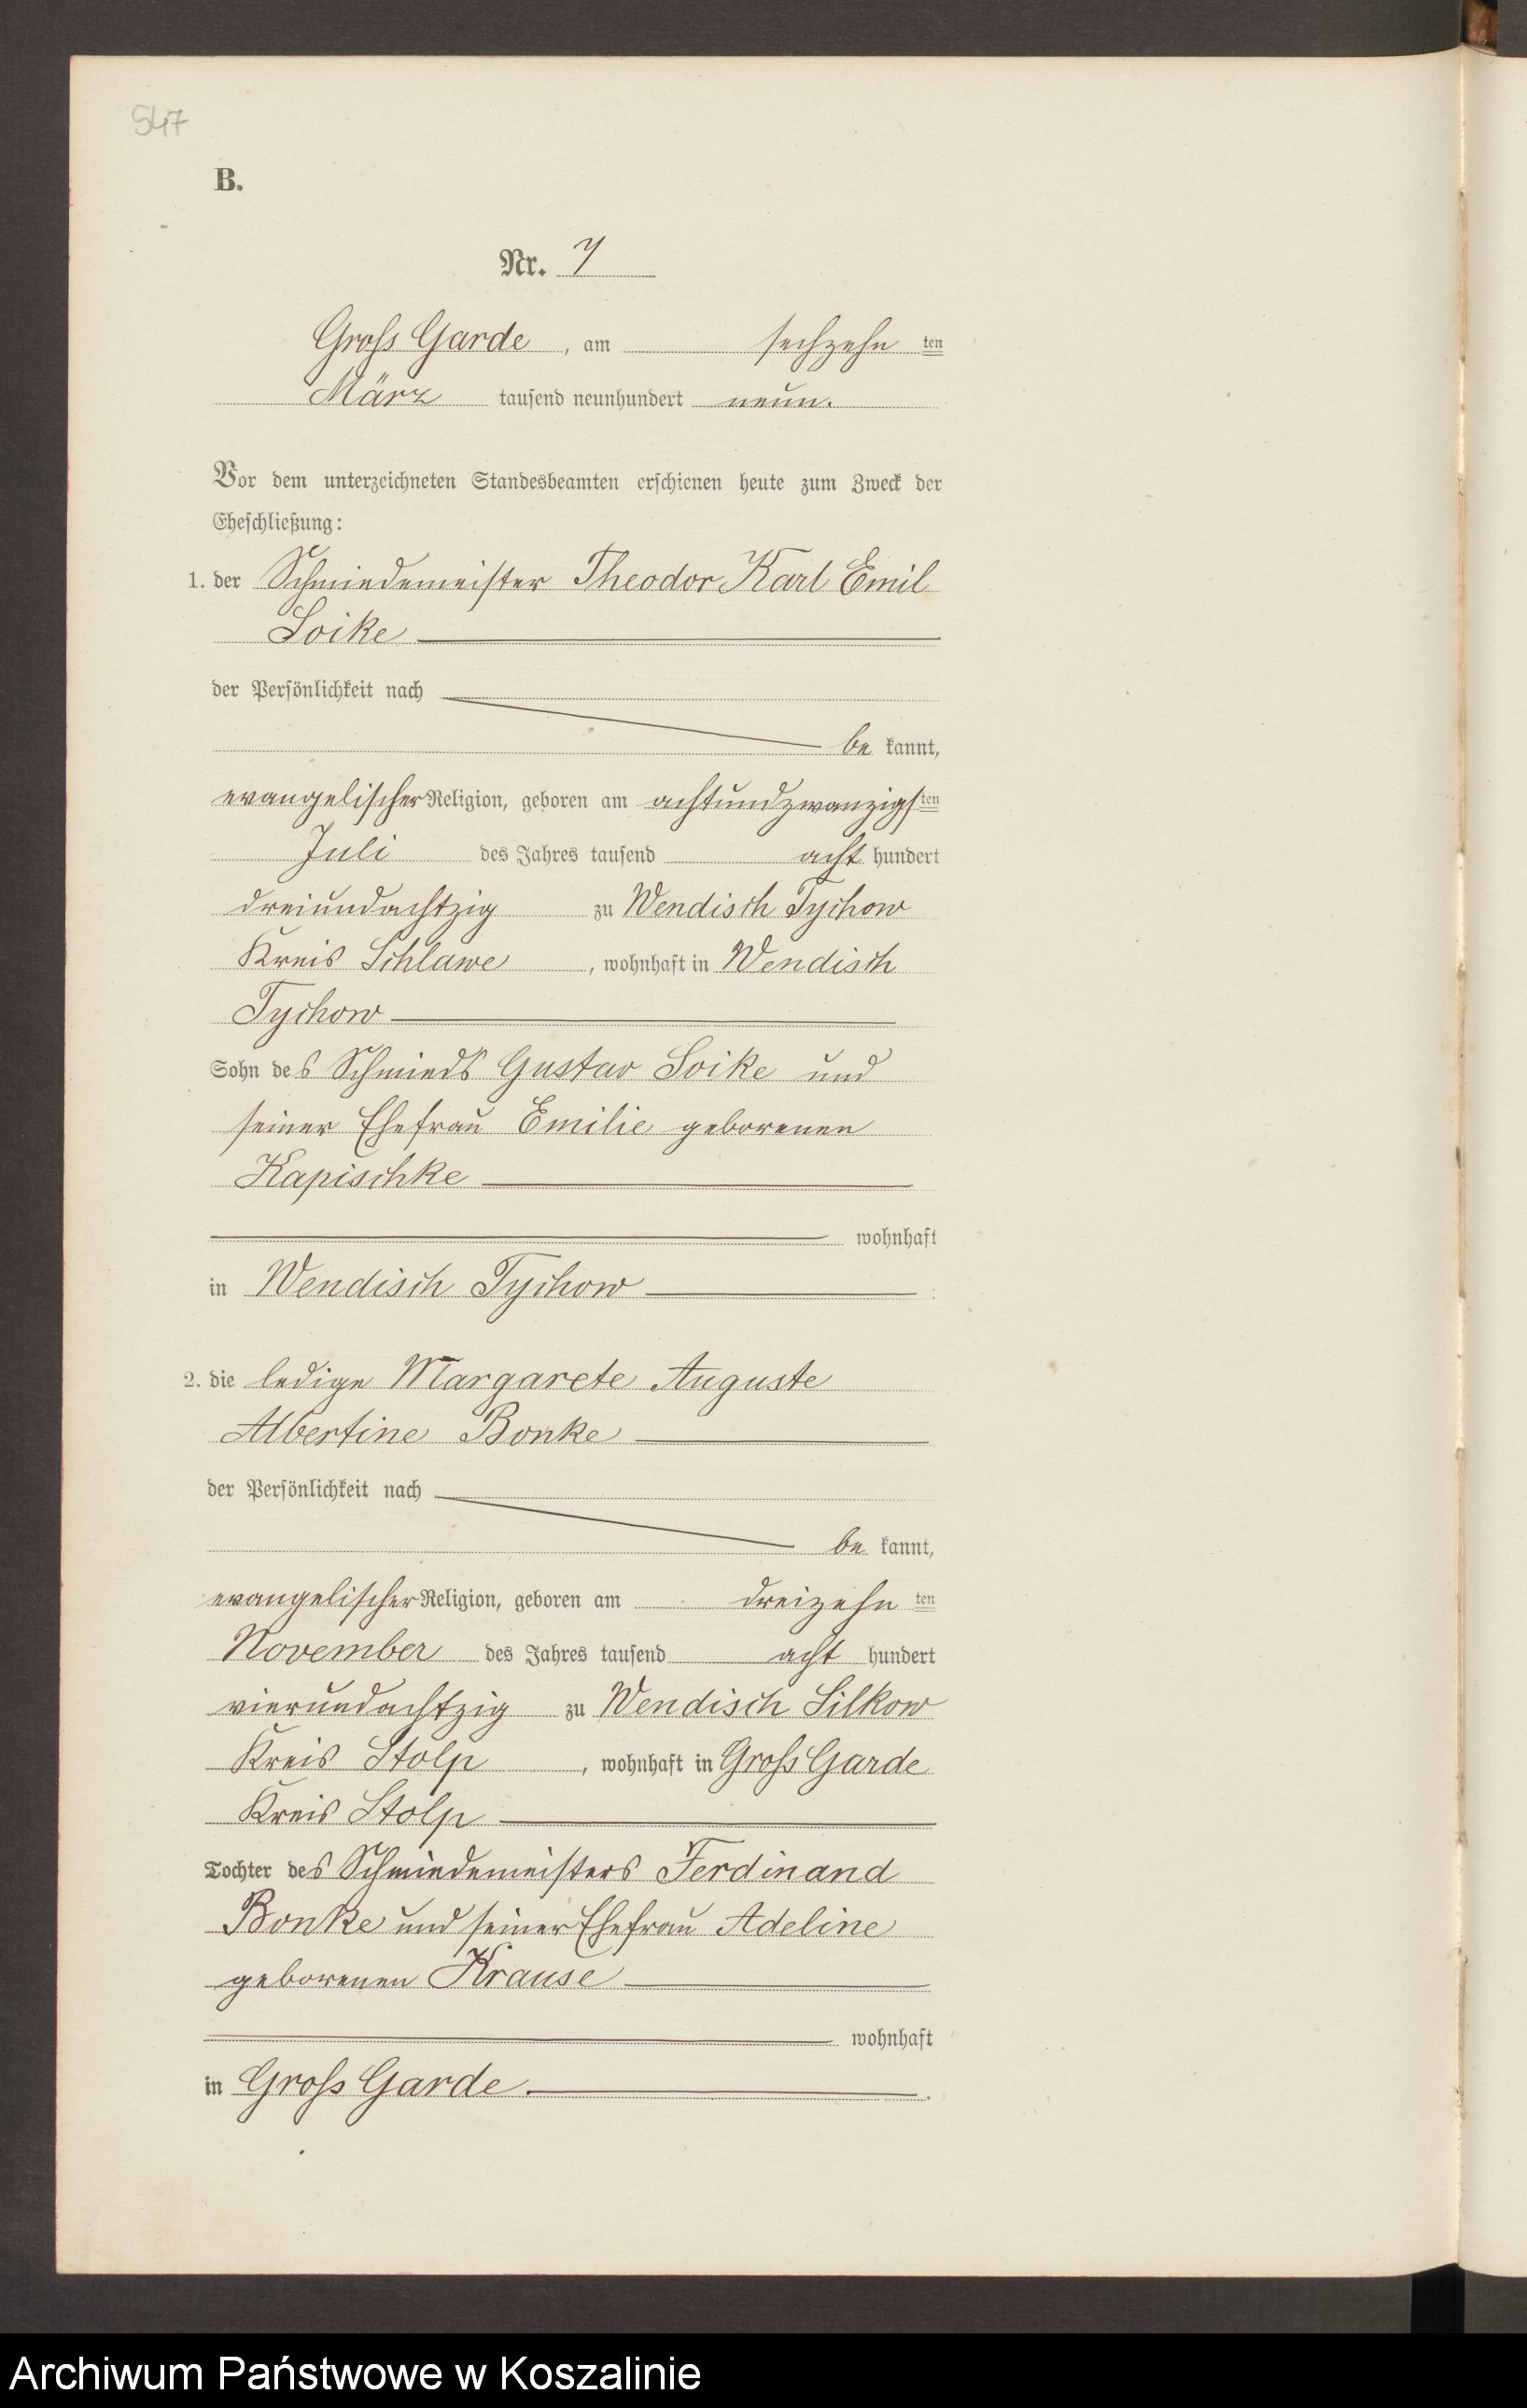 547
B.
Nr. 7
Gross Garde, am sechzehn ten
März tausend neunhundert neun.
Vor dem unterzeichneten Standesbeamten erschienen heute zum Zweck der
Eheschließung:
1. der Schmiedemeister Theodor Karl Emil
Loike
der Persönlichkeit nach
be kannt,
evangelischer Religion, geboren am achtundzwanzigsten
Juli des Jahres tausend acht hundert
dreiundachtzig zu Wendisch Tychow
Kreis Schlawe, wohnhaft in Wendisch
Tychow
Sohn des Schmieds Gustav Loike und
seiner Ehefrau Emilie geborenen
Kapischke
wohnhaft
in Wendisch Tychow
2. die ledige Margarete Auguste
Albertine Bonke
der Persönlichkeit nach
be kannt,
evangelischer Religion, geboren am dreizehn ten
November des Jahres tausend acht hundert
vierundachtzig zu Wendisch Silkow
Kreis Stolp, wohnhaft in Gross Garde
Kreis Stolp
Tochter des Schmiedemeisters Ferdinand
Bonke und seiner Ehefrau Adeline
geborenen Krause
wohnhaft
in Gross Garde.
Archiwum Państwowe w Koszalinie